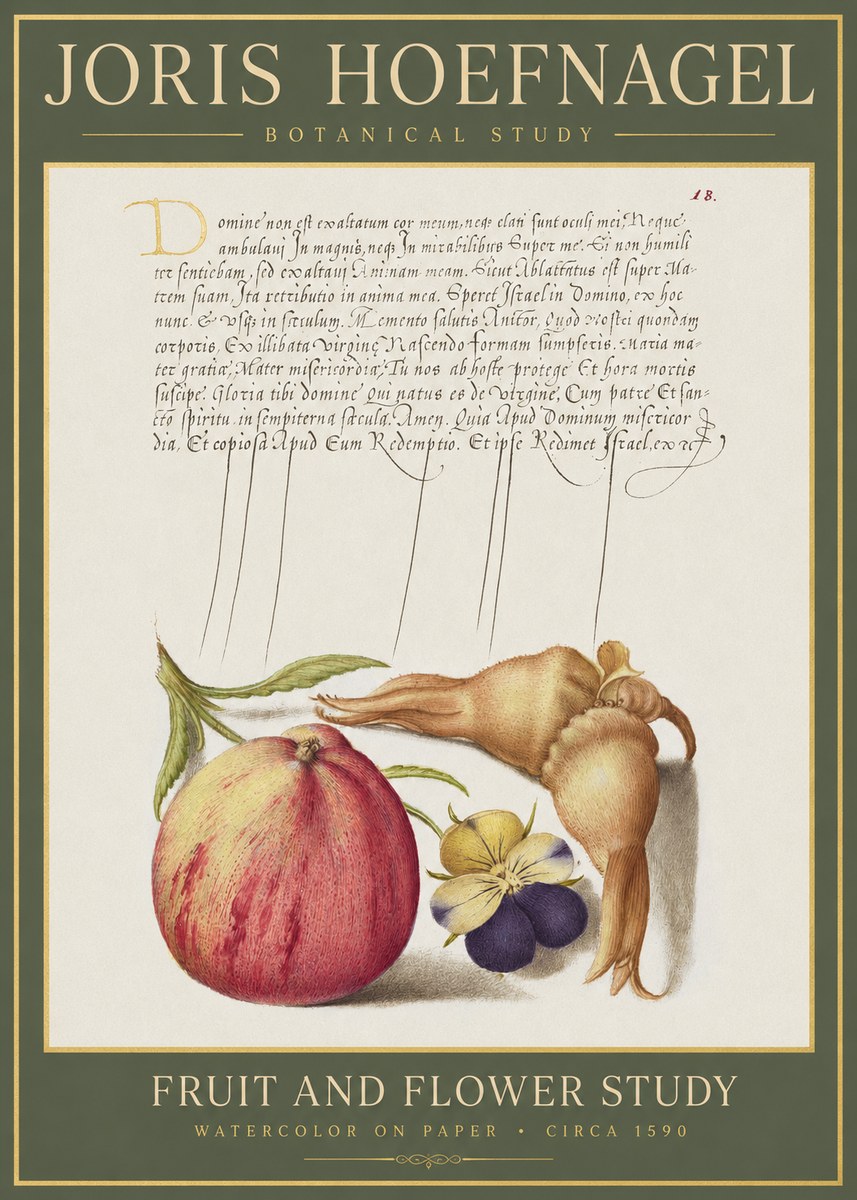 JORIS HOEFNAGEL
BOTANICAL STUDY
18.
Domine non est exaltatum cor meum, neqꝫ elati sunt oculi mei, Neque
ambulaui In magnis, neqꝫ In mirabilibus Super me. Si non humili
ter sentiebam, sed exaltaui Animam meam. Sicut Ablactatus est super Ma-
trem suam, Ita retributio in anima mea. Speret Israel in Domino, ex hoc
nunc & vsqꝫ in sæculum. Memento salutis quondam
corporis, Ex illibata virginę Nascendo formam sumpseris. Maria ma-
ter gratiæ, Mater misericordiæ, Tu nos ab hoste protege Et hora mortis
suscipe. Gloria tibi domine Qui natus es de virgine, Cum patre Et san-
cto spiritu in sempiterna sæcula. Amen. Quia Apud Dominum misericor
dia, Et copiosa Apud Eum Redemptio. Et ipse Redimet Israel, ex
FRUIT AND FLOWER STUDY
WATERCOLOR ON PAPER • CIRCA 1590